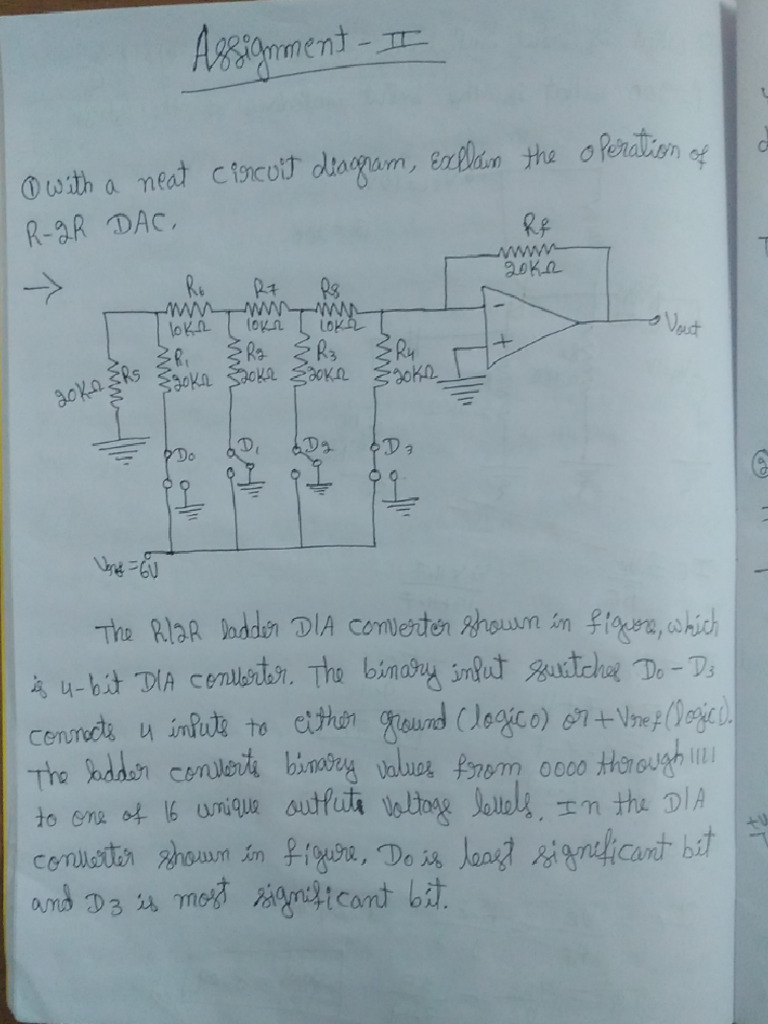 Assignment - II
① with a neat circuit diagram, explain the operation of
R-2R DAC.
→
Rf
20KΩ
R6 R7 R8
10KΩ 10KΩ 10KΩ
- Vout
+
20KΩ R5 R1 20KΩ R2 20KΩ R3 20KΩ R4 20KΩ
D0 D1 D2 D3
Vref = 6V
The R/2R ladder D/A converter shown in figure, which
is 4-bit D/A converter. The binary input switches D0 - D3
connects 4 inputs to either ground (logic 0) or + Vref (logic 1).
The ladder converts binary values from 0000 through 1111
to one of 16 unique output voltage levels. In the D/A
converter shown in figure, D0 is least significant bit
and D3 is most significant bit.